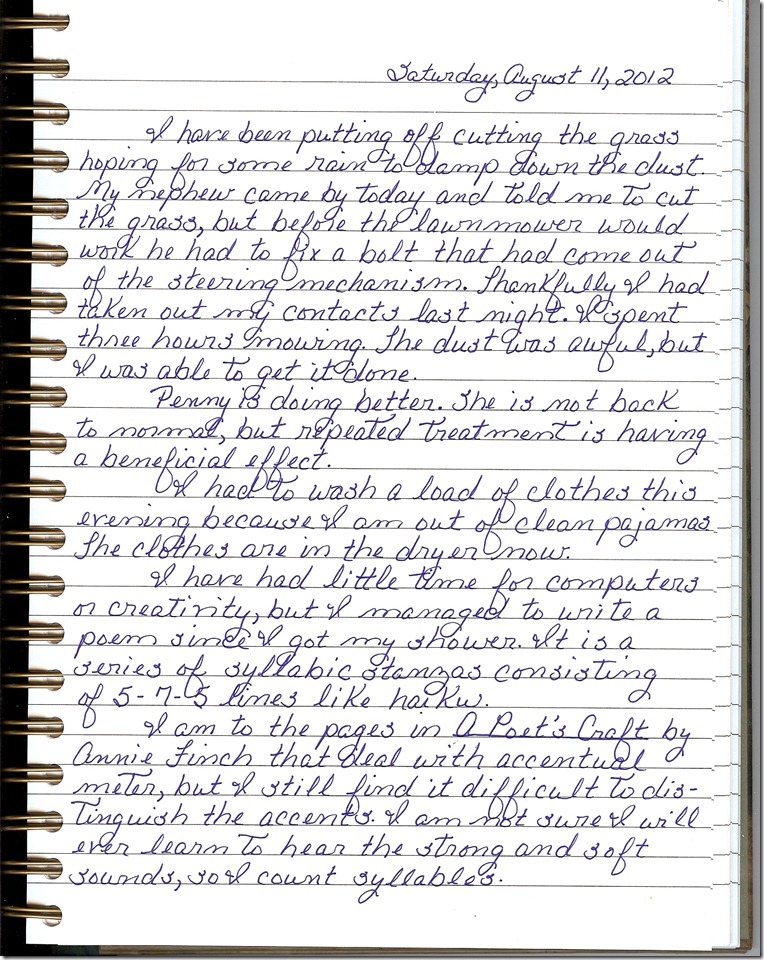 Saturday, August 11, 2012
I have been putting off cutting the grass
hoping for some rain to damp down the dust.
My nephew came by today and told me to cut
the grass, but before the lawnmower would
work he had to fix a bolt that had come out
of the steering mechanism. Thankfully I had
taken out my contacts last night. I spent
three hours mowing. The dust was awful, but
I was able to get it done.
Penny is doing better. She is not back
to normal, but repeated treatment is having
a beneficial effect.
I had to wash a load of clothes this
evening because I am out of clean pajamas.
The clothes are in the dryer now.
I have had little time for computers
or creativity, but I managed to write a
poem since I got my shower. It is a
series of syllabic stanzas consisting
of 5-7-5 lines like haiku.
I am to the pages in A Poet's Craft by
Annie Finch that deal with accentual
meter, but I still find it difficult to dis-
tinguish the accents. I am not sure I will
ever learn to hear the strong and soft
sounds, so I count syllables.